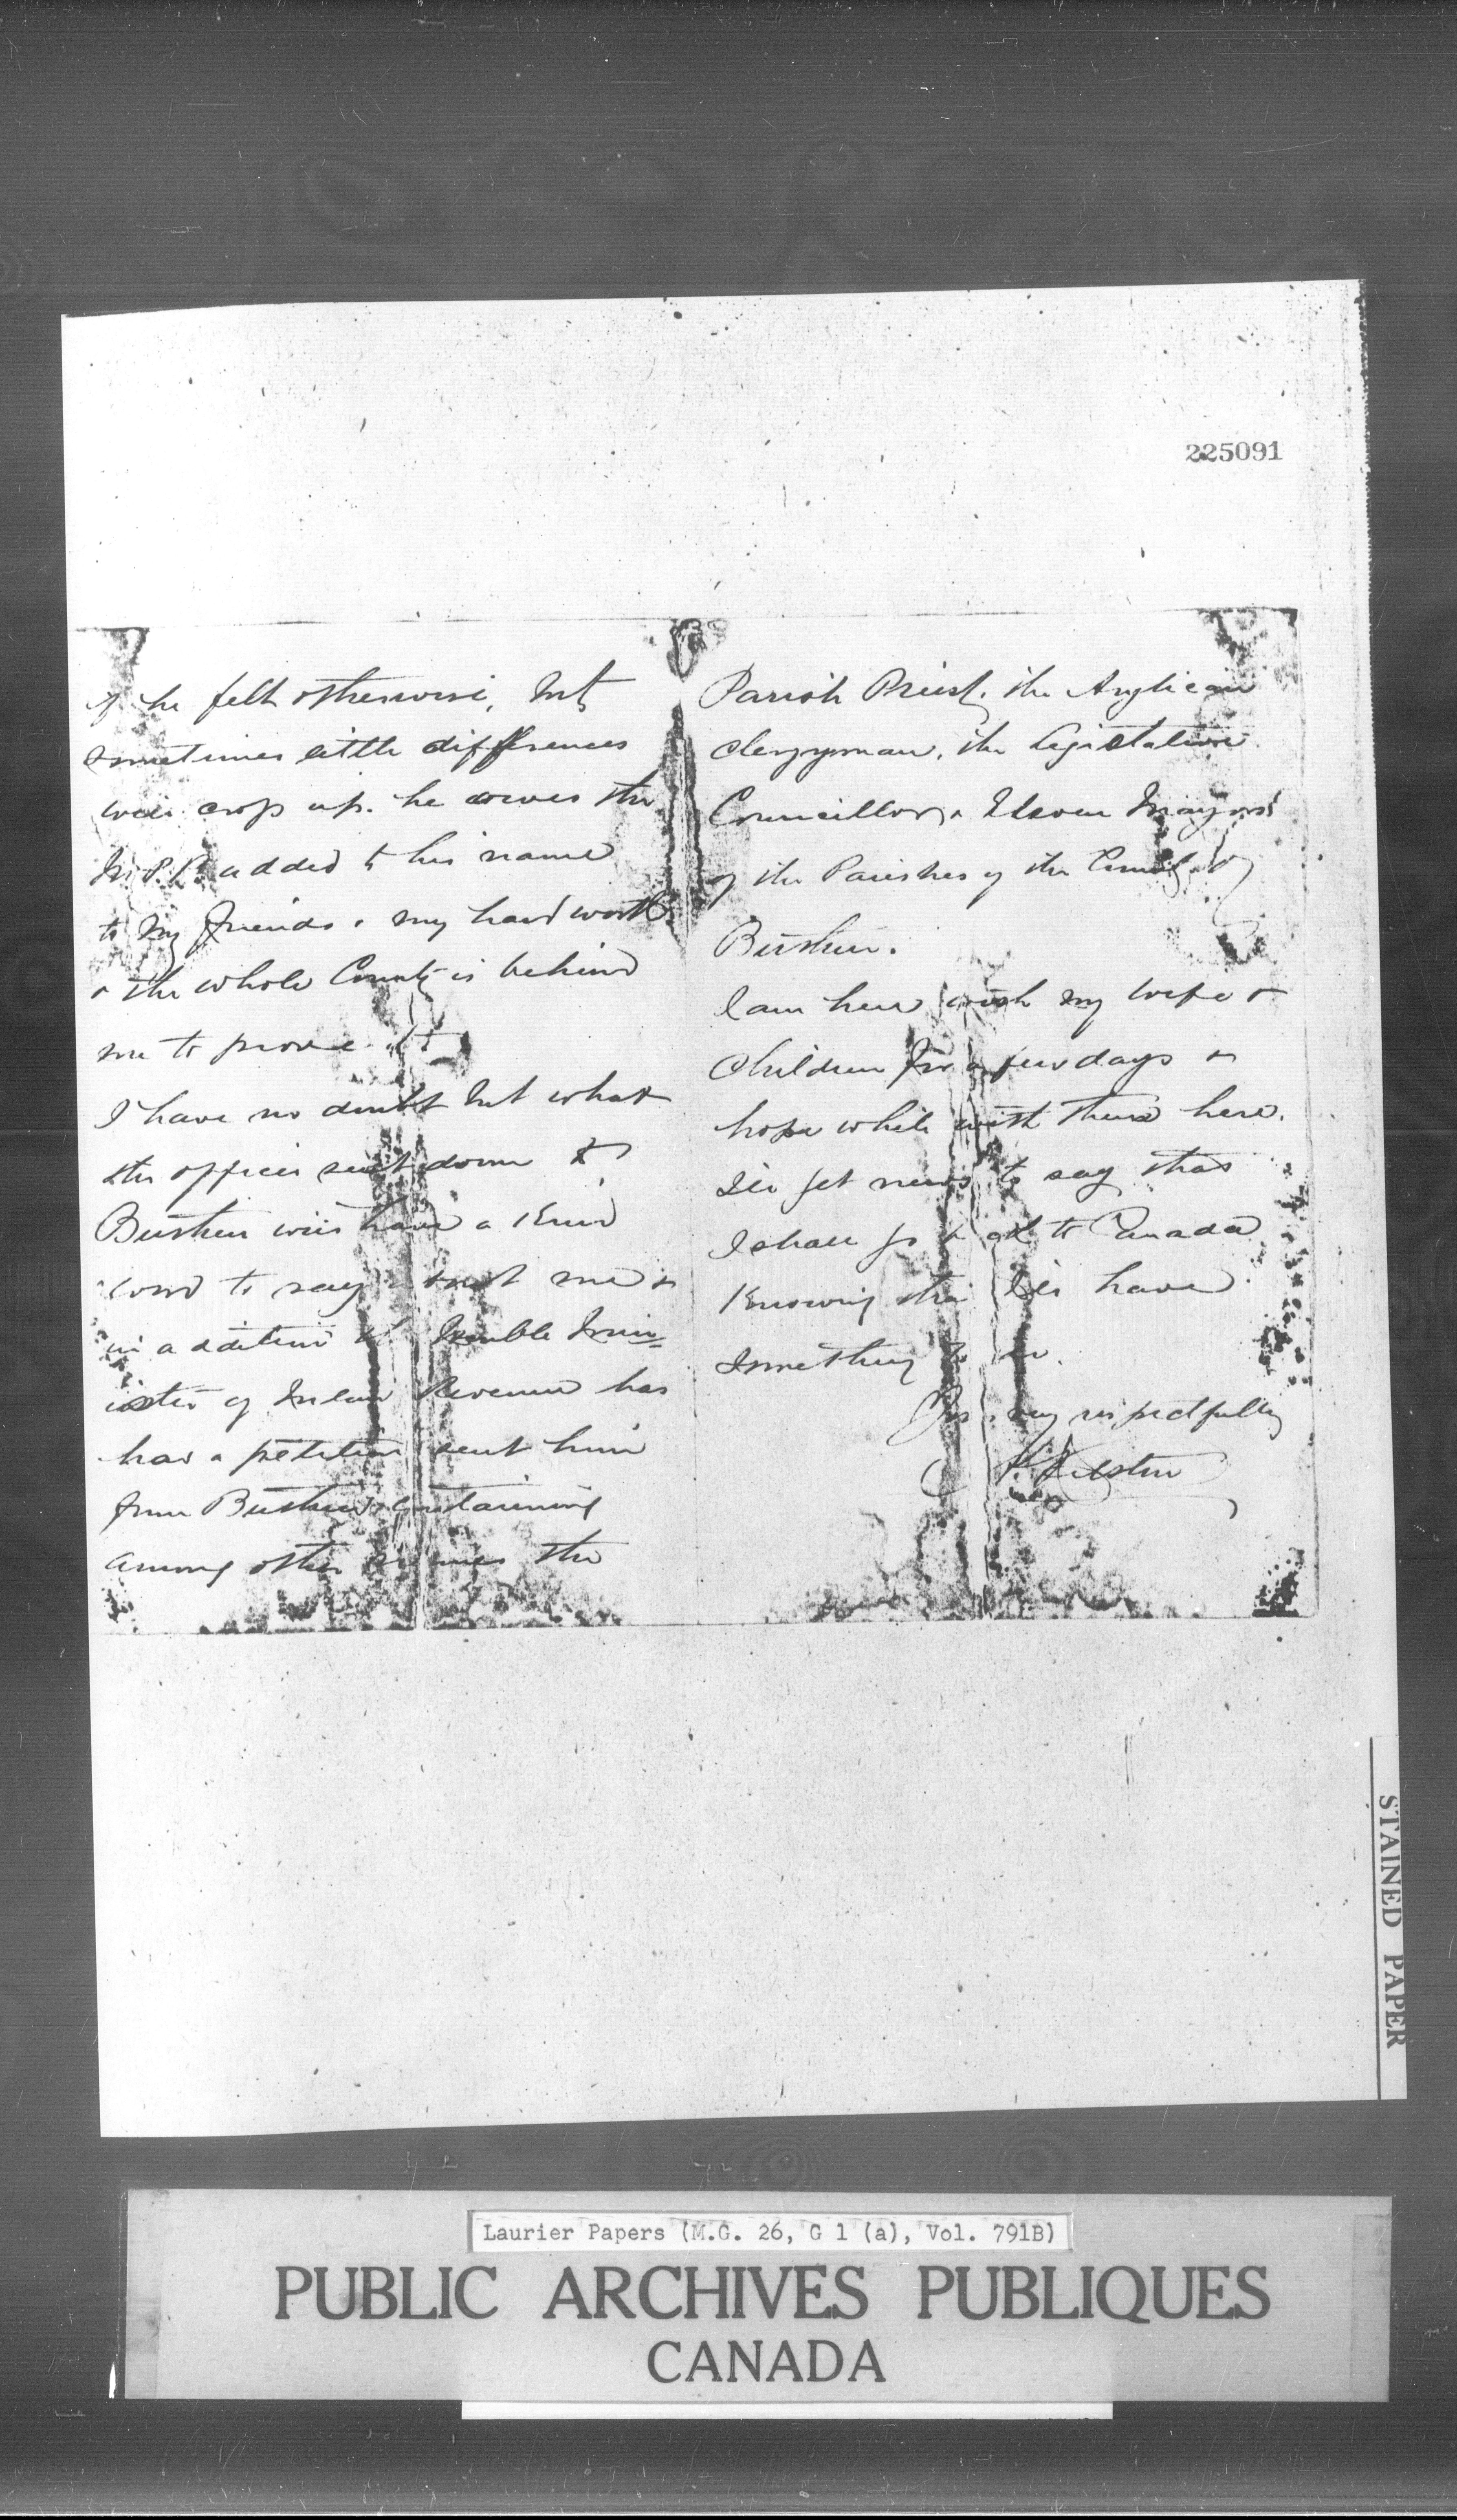 225091
if he felt otherwise, but
sometimes little differences
will crop up. he owes the
M.P.P. added to his name
to my friends & my hard work
& the whole County is behind
me to prove it
I have no doubt but what
the officer sent down to
Berthier will have a kind
word to say about me &
in addition Honble Min=
ister of Inland Revenue has
had a petition sent him
from Berthier containing
among other names the
Parish Priest, the Anglican
Clergyman, the Legislative
Councillor, & Eleven Mayors
of the Parishes of the County of
Berthier.
I am here with my wife &
Children for a few days &
hope while with them here.
I'll get news to say that
I shall go back to Canada
Knowing that I'll have
something to do.
Yrs very respectfully
STAINED PAPER
Laurier Papers (M.G. 26, G 1 (a), Vol. 791B)
PUBLIC ARCHIVES PUBLIQUES
CANADA